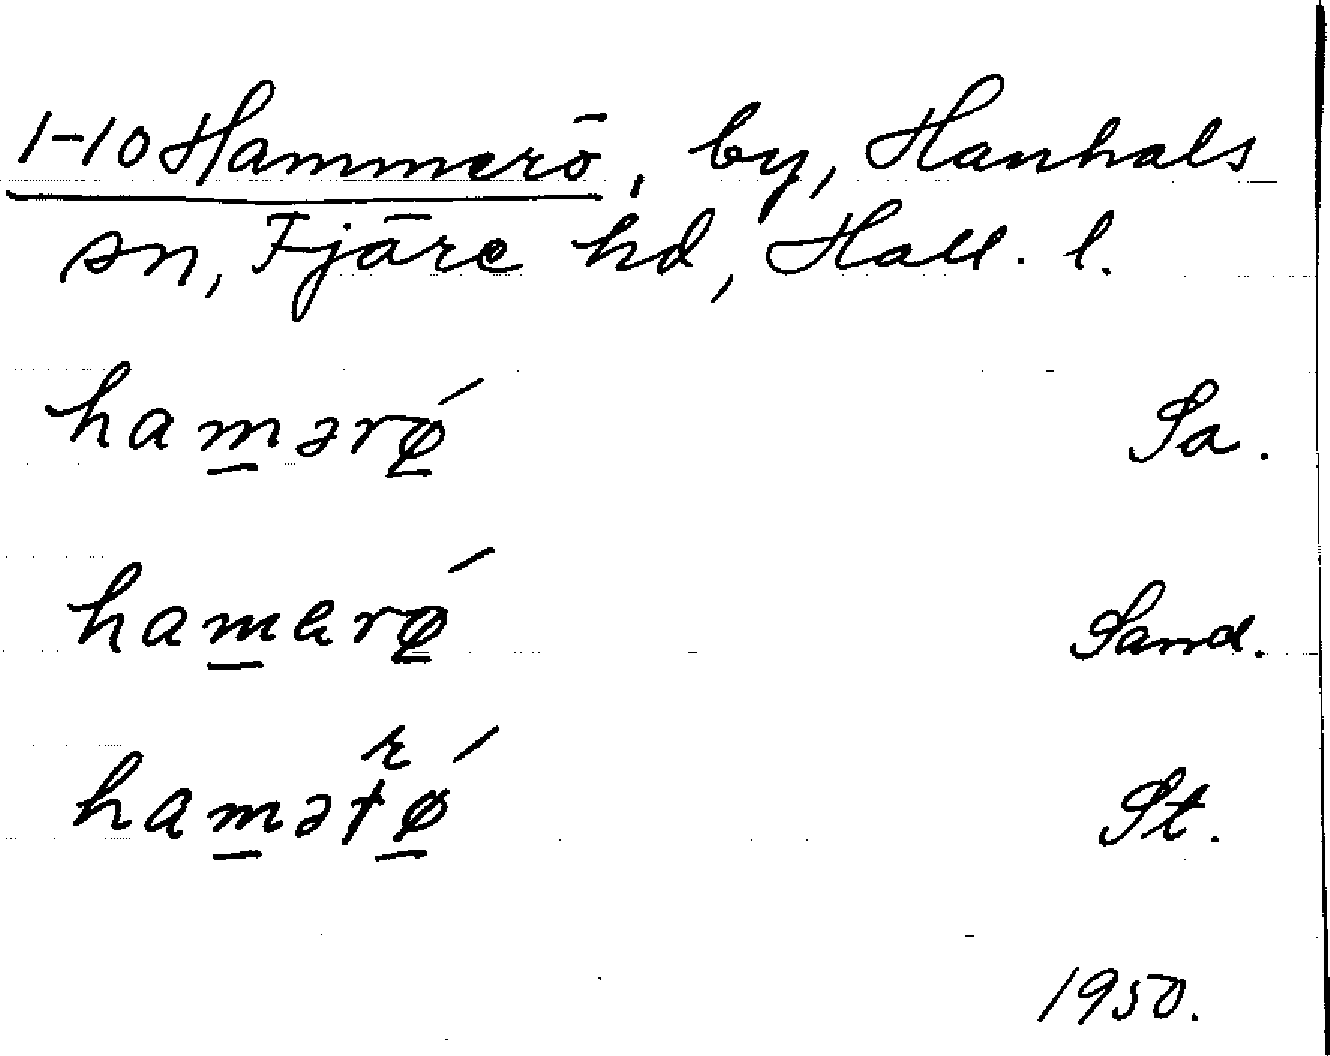 1-10 Hammerö, by, Hanhals
sn, Fjäre hd, Hall. l.
ham̲ərǿ̲ Sa.
ham̲erǿ̲ Sand.
ham̲ətǿ̲ St.
1950.